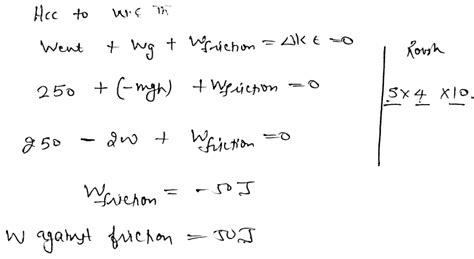 Acc to W.E Th
Went + Wg + Wfriction = ΔKE = 0
Rough
250 + (-mgh) + Wfriction = 0
5 × 4 × 10.
250 - 200 + Wfriction = 0
Wfriction = -50J
W against friction = 50J